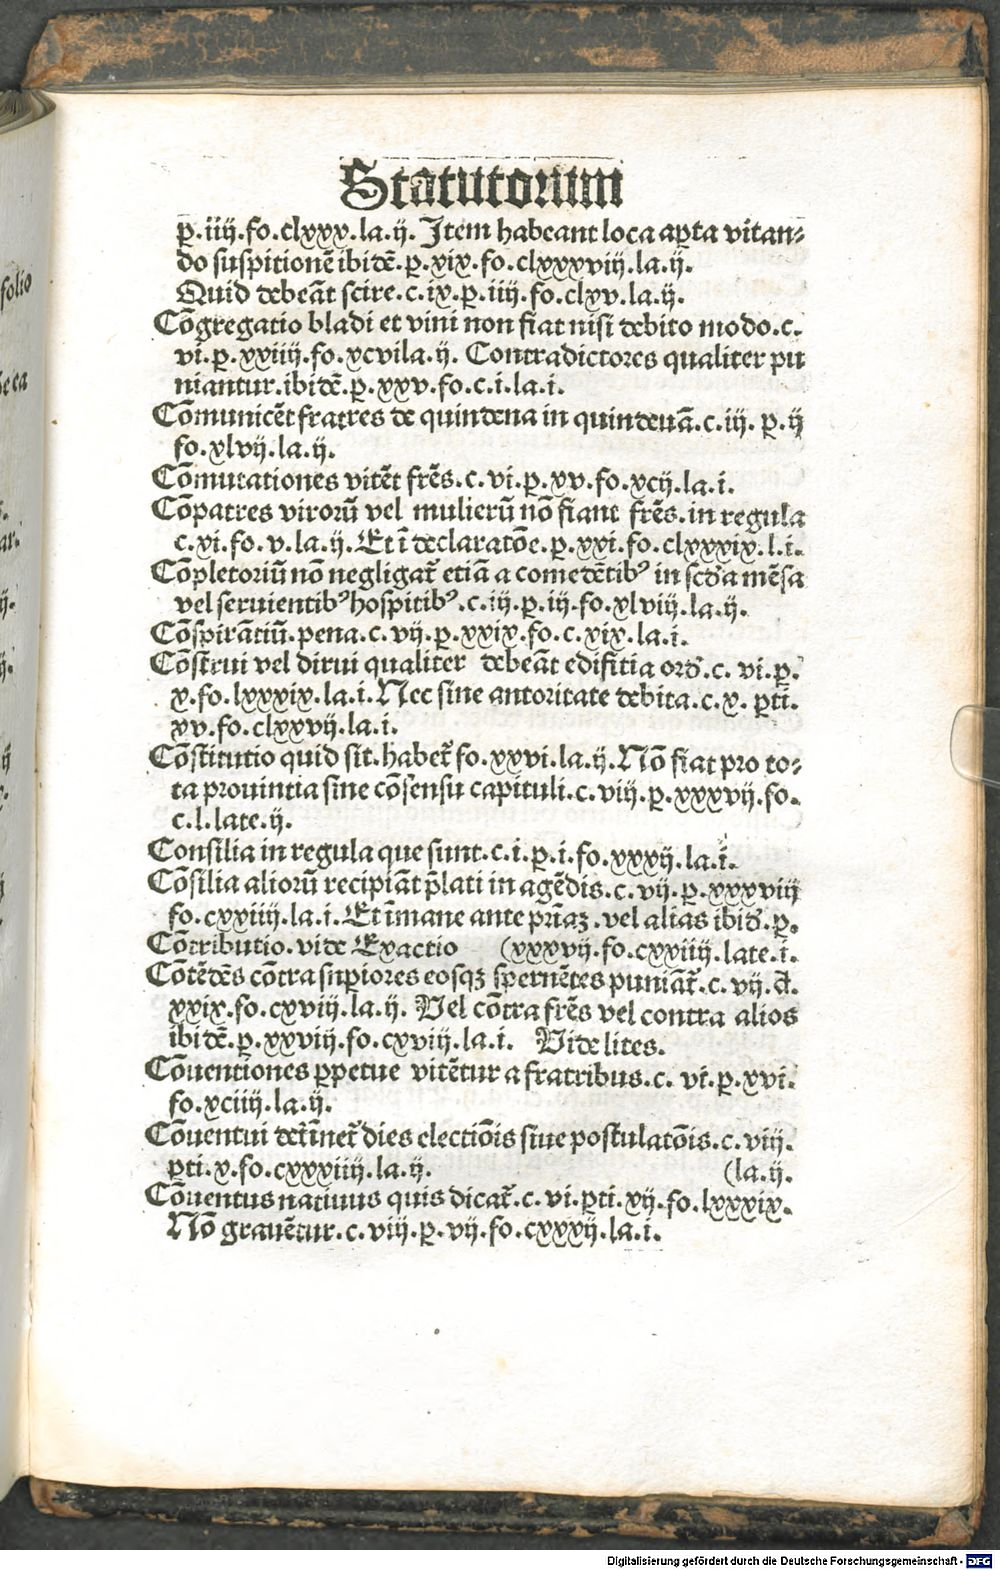 Statutorum
ꝑ.iiij.fo.clxxx.la.ij. Item habeant loca aꝑta vitan⸗
do suspitionē ibidē.ꝑ.xix.fo.clxxxviij.la.ij.
Quid debeāt scire.c.ix.ꝑ.iiij.fo.clxv.la.ij.
Cōgregatio bladi et vini non fiat nisi debito modo.c.
vi.ꝑ.xxiiij.fo.xcvi la.ij. Contradictores qualiter pu
niantur.ibidē.ꝑ.xxv.fo.c.i.la.i.
Cōmunicēt fratres de quindena in quindenā.c.iij.ꝑ.ij
fo.xlvij.la.ij.
Cōmutationes vitēt fr̄es.c.vi.ꝑ.xv.fo.xcij.la.i.
Cōpatres virorū vel mulierū nō fiant fr̄es.in regula
c.xi.fo.v.la.ij. Et ī declaratōe.ꝑ.xxi.fo.clxxxix.l.i.
Cōpletoriū nō negligat᷑ etiā a comedētibꝰ in scd̄a mēsa
vel seruientibꝰ hospitibꝰ.c.iij.ꝑ.iij.fo.xlviij.la.ij.
Cōspirātiū.pena.c.vij.ꝑ.xxix.fo.c.xix.la.i.
Cōstrui vel dirui qualiter debeāt edifitia ord̄.c.vi.ꝑ.
x.fo.lxxxix.la.i. Nec sine autoritate debita.c.x.ꝑti.
xv.fo.clxxvij.la.i.
Cōstitutio quid sit.habet᷑ fo.xxvi.la.ij. Nō fiat pro to⸗
ta prouintia sine cōsensu capituli.c.viij.ꝑ.xxxvij.fo.
c.l.late.ij.
Consilia in regula que sunt.c.i.ꝑ.i.fo.xxxij.la.i.
Cōsilia aliorū recipiāt p̄lati in agēdis.c.vij.ꝑ.xxxviij
fo.cxxiiij.la.i. Et īmane ante pr̄iaꝫ.vel alias ibid̄.ꝑ.
Cōtributio.vide Exactio (xxxvij.fo.cxxiiij.late.i.
Cōtēdēs cōtra suꝑiores eosqꝫ spernētes puniāt᷑.c.vij.ꝑ.
xxix.fo.cxviij.la.ij. Vel cōtra fr̄es vel contra alios
ibidē.ꝑ.xxviij.fo.cxviij.la.i. Vide lites.
Cōuentiones ꝑpetue vitētur a fratribus.c.vi.ꝑ.xvi.
fo.xciiij.la.ij.
Cōuentui det᷑īnet᷑ dies electiōis siue postulatōis.c.viij.
ꝑti.x.fo.cxxxiiij.la.ij. (la.ij.
Cōuentus natiuus quis dicat᷑.c.vi.ꝑti.xij.fo.lxxxix.
Nō grauētur.c.viij.ꝑ.vij.fo.cxxxij.la.i.
Digitalisierung gefördert durch die Deutsche Forschungsgemeinschaft - DFG